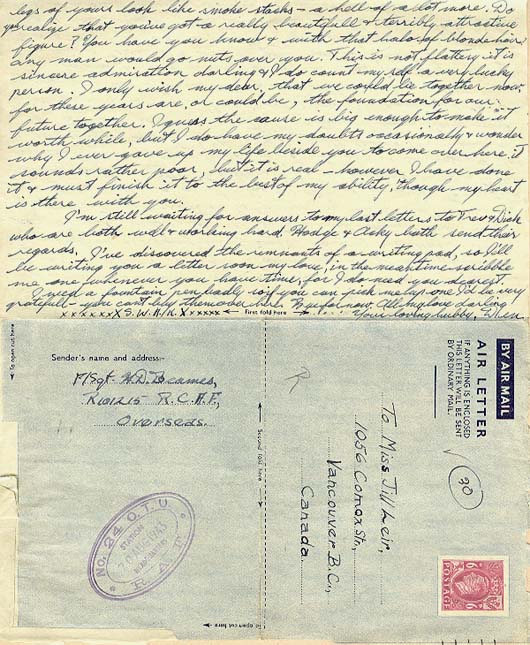 legs of yours look like smoke stacks - a hell of a lot more. Do
you realize that you've got a really beautiful & terribly attractive
figure? You have you know & with that halo of blonde hair
any man would go nuts over you. This is not flattery it is
sincere admiration darling & I do count myself a very lucky
person. I only wish my dear, that we could be together now,
for these years are, or could be, the foundation for our
future together. I guess the cause is big enough to make it
worth while, but I do have my doubts occasionally & wonder
why I ever gave up my life beside you to come over here, it
sounds rather poor, but it is real - however I have done
it & must finish it to the best of my ability, though my heart
is there with you.
I'm still waiting for answers to my last letters to Trev & Dick
who are both well & working hard. Hodge & both send their
regards. I've discovered the remnants of a writing pad, so I'll
be writing you a letter soon my love, in the meantime scribble
me one whenever you have time, for I do need you dearest.
I need a fountain pen badly, so if you can pick me up one I'd be very
grateful - you can't buy them over here. Bye for now, All my love darling
xxxxxxX S.W.A.K. Xxxxxxx First fold here Your loving hubby,
Sender's name and address:-
F/Sgt. W.D. Beames,
R101215 R.C.A.F.,
Overseas.
Second fold here
No. 24 O.T.U.
STATION
AUG 1943
R.A.F.
To open cut here
BY AIR MAIL
AIR LETTER
IF ANYTHING IS ENCLOSED
THIS LETTER WILL BE SENT
BY ORDINARY MAIL.
R
30
To Miss Jill Leir,
1056 Comox Str,
Vancouver B.C,
Canada.
POSTAGE
To open cut here